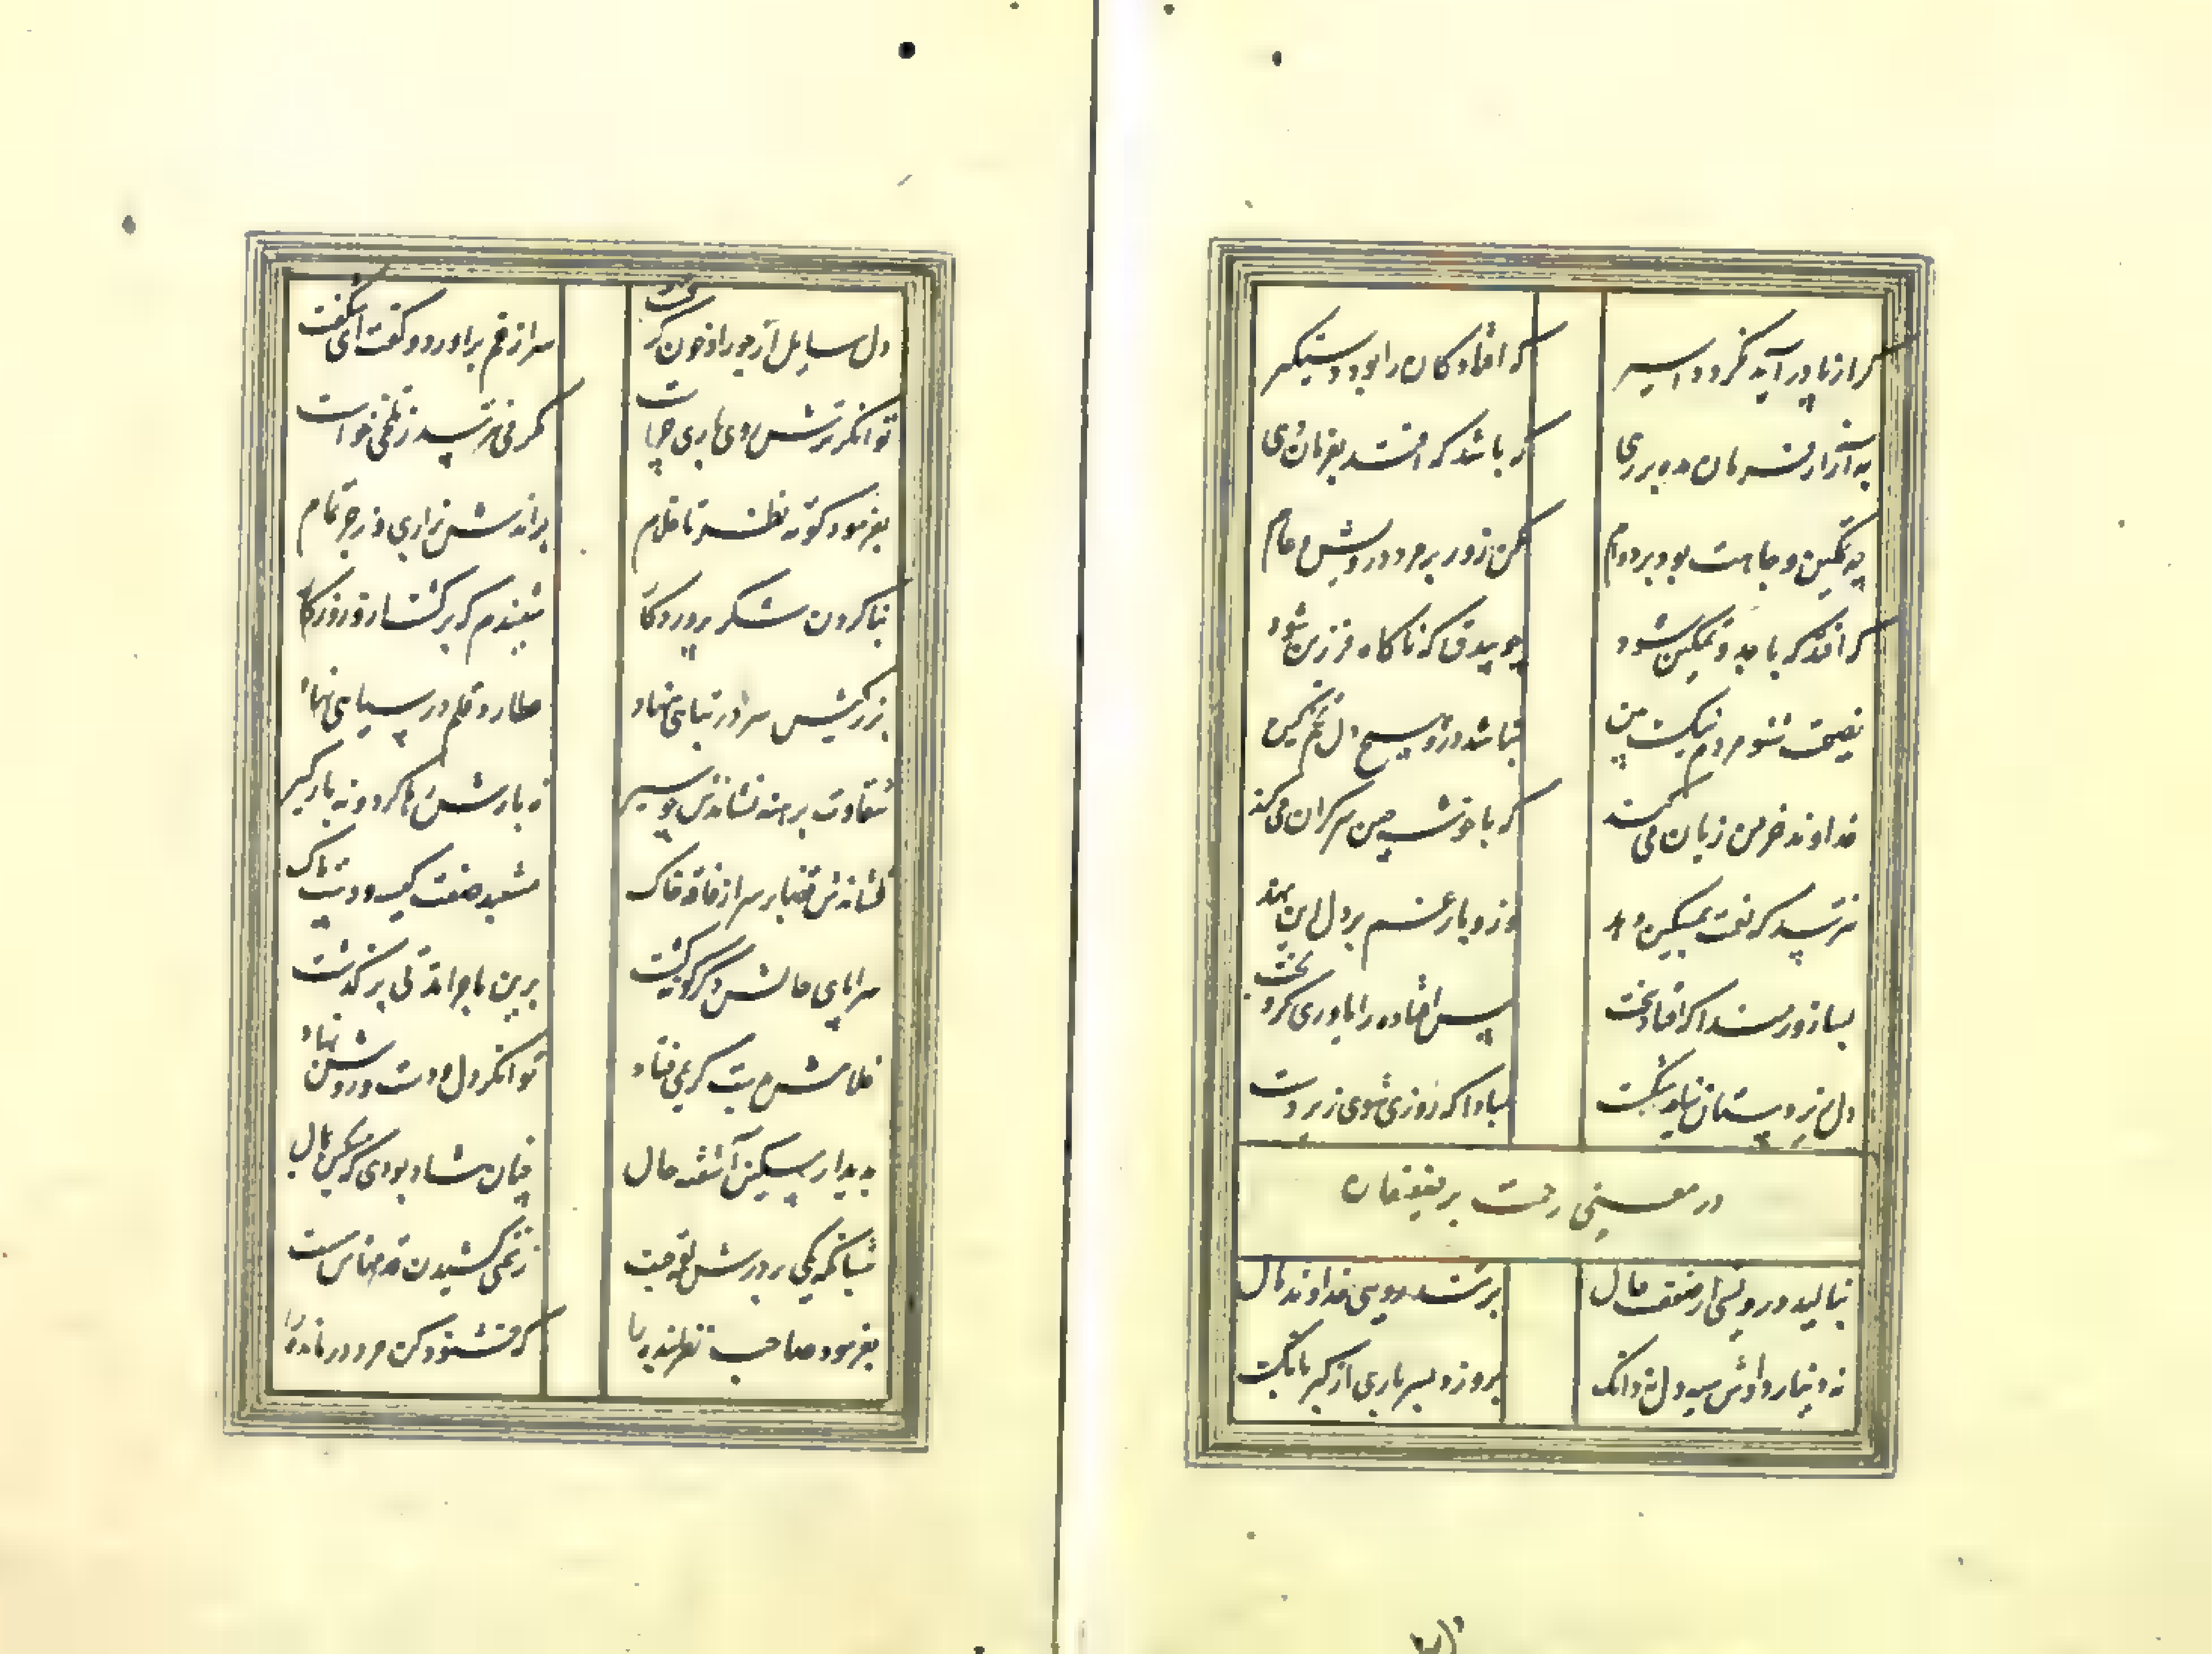 کز از پا درآید نگردد اسیر
که افتادگان را بود دستگیر
به آزار فرمان مده بر رهی
که باشد که افتد بفرماندهی
چو تمکین و جاهت بود بر دوام
مکن زور بر مرد درویش عام
که افتد که با جاه و تمکین شود
چو بیدق که ناگاه فرزین شود
نصیحت شنو مردم نیک بین
نپاشد در هیچ دل تخم کین
خداوند خرمن زیان می کند
که با خوشه چین سر گران می کند
نترسد که نعمت بمسکین دهد
وزو بار غم بر دل این نهد
بسا زورمندا که افتاد سخت
پس افتاده را یاوری کرد بخت
دل زیردستان نباید شکست
مبادا که روزی شوی زیردست
در معنی رحمت بر ضعیفان
بنالید درویشی از ضعف حال
بر تند رویی خداوند مال
نه دینار دادش سیه دل نه دانگ
برو زد بسر باری از کبر بانگ
دل سایل از جور او خون گرفت
سر از غم برآورد و گفت ای شگفت
توانگر ترش روی باری چراست
مگر می نترسد ز تلخی خواست
بفرمود کوته نظر تا غلام
براندش بزاری و زجر تمام
بنا کردن شکر پروردگار
شنیدم که برگشت ازو روزگار
بزرگیش سر در تباهی نهاد
عطارد قلم در سیاهی نهاد
شقاوت برهنه نشاندش چو سیر
نه بارش رها کرد و نه بارگیر
فشاندش قضا بر سر از فاقه خاک
مشعبد صفت کیسه و دست پاک
سراپای حالش دگرگونه گشت
برین ماجرا مدتی برگذشت
غلامش بدست کریمی فتاد
توانگر دل و دست و روشن نهاد
بدیدار مسکین آشفته حال
چنان شاد بودی که مسکین بمال
شبانگه یکی بر درش لقمه جست
ز سختی کشیدن قدمهاش سست
بفرمود صاحب نظر بنده را
که خشنود کن مرد درمانده را